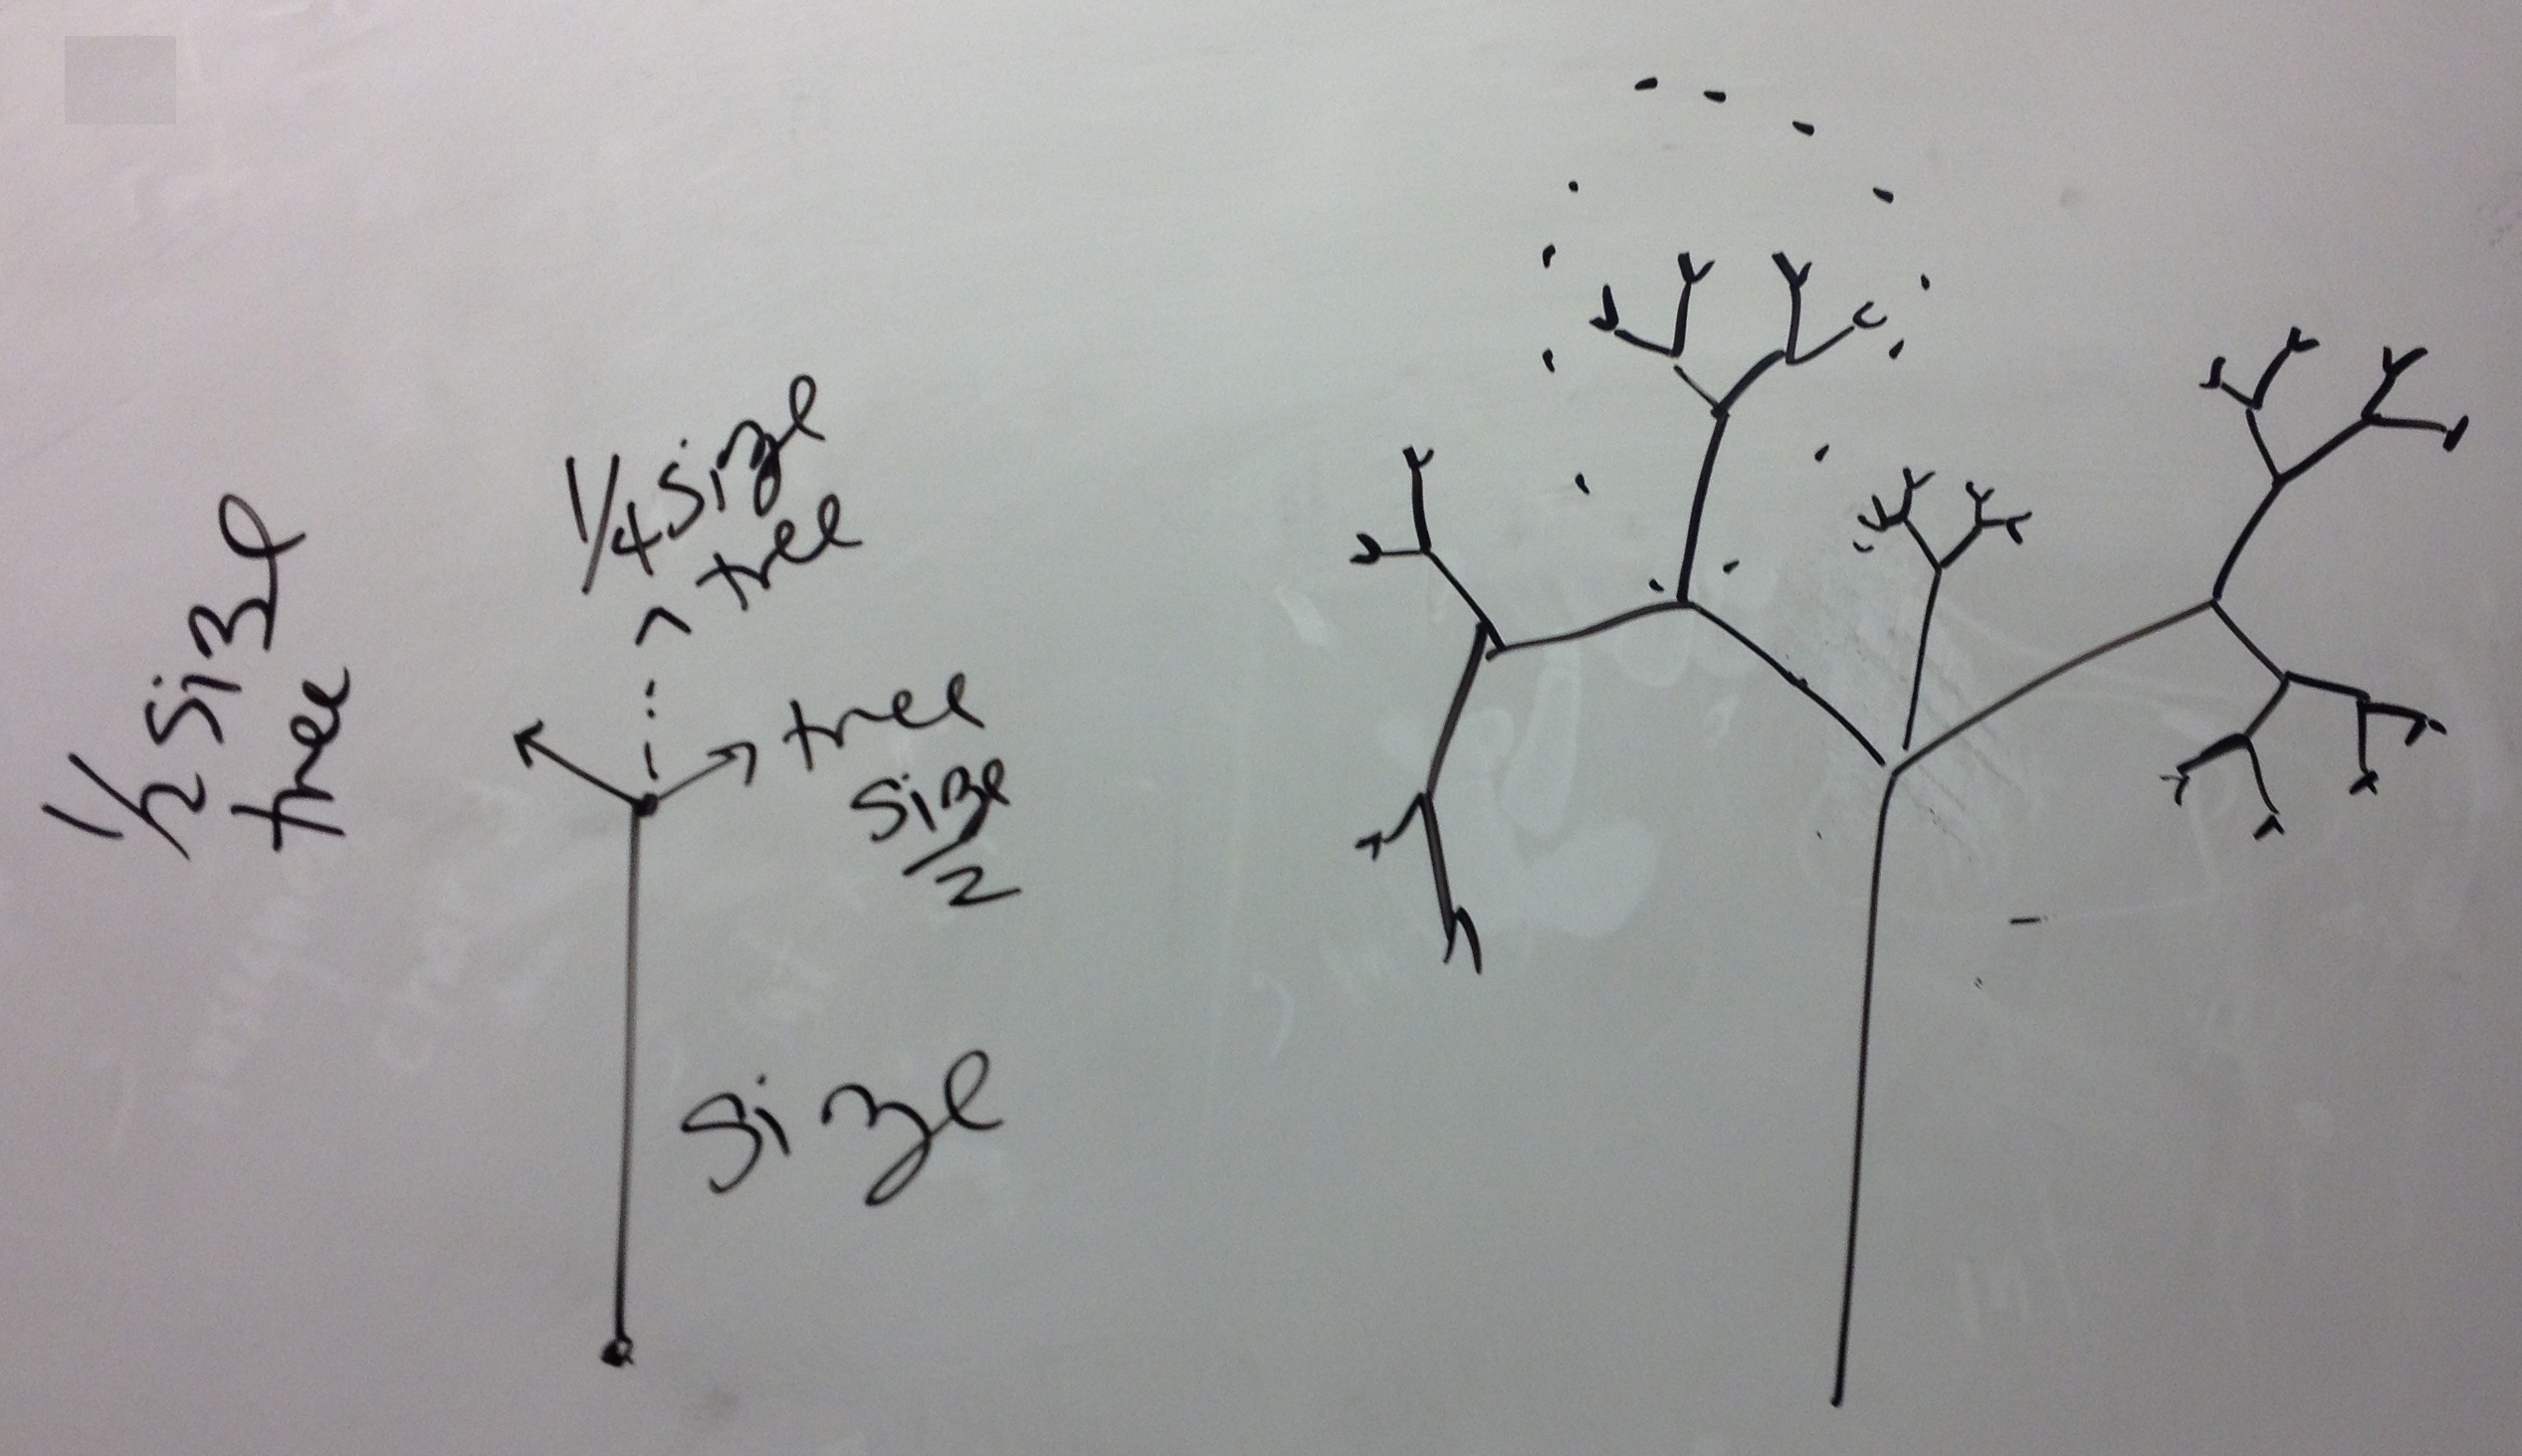 1/2 size
tree
1/4 size
tree
tree
size
/
2
size